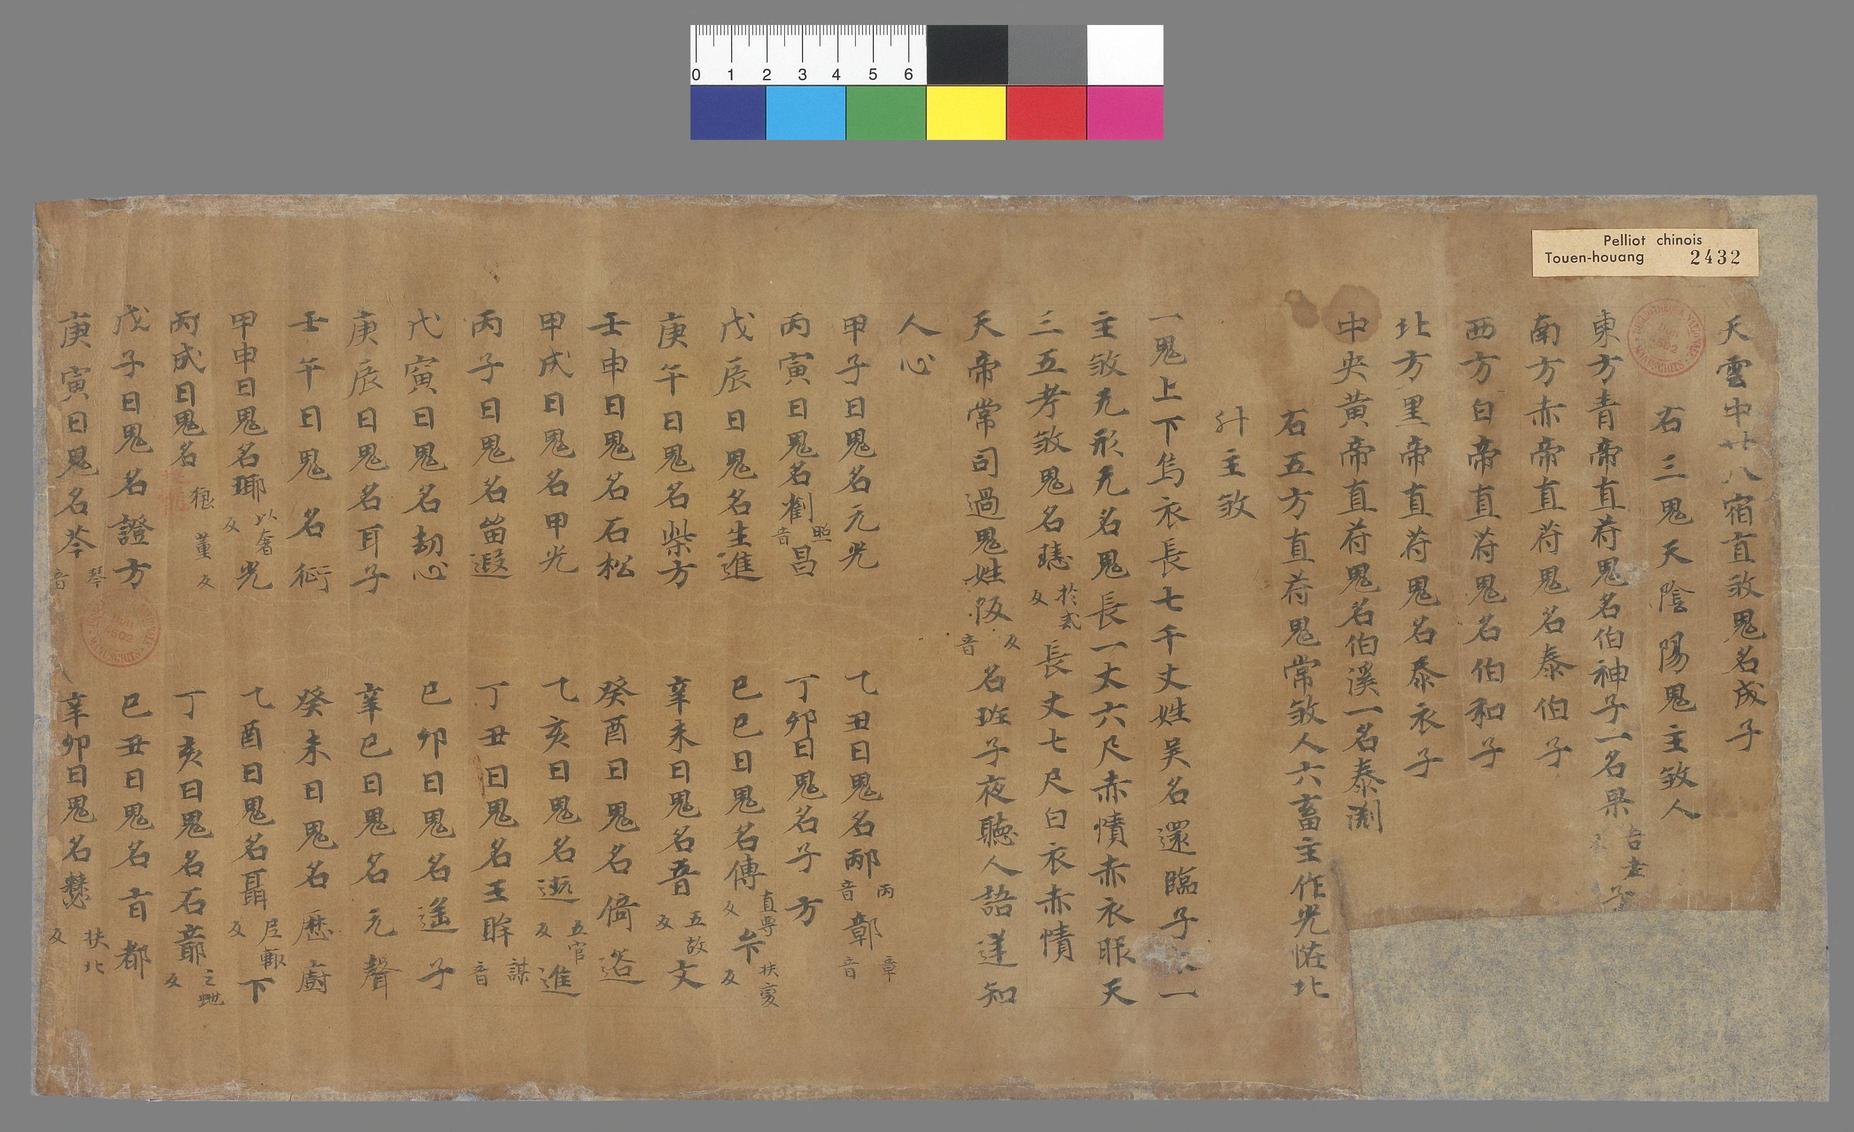 Pelliot chinois
Touen-houang 2432
0 1 2 3 4 5 6
天雲中廿八宿直敘鬼名成子
右三鬼天陰陽鬼主敘人
東方青帝直符鬼名伯神子一名杲古老子
南方赤帝直符鬼名泰伯子
西方白帝直符鬼名伯和子
北方黑帝直符鬼名泰衣子
中央黃帝直符鬼名伯溪一名泰渊
右五方直符鬼常敘人六畜主作光恠北
斗主敘
一鬼上下烏衣長七千丈姓吴名還臨子一
主敘无形无名鬼長一丈六尺赤幘赤衣眼天
三五考敘鬼名 於 反長丈七尺白衣赤幘
天帝常司過鬼姓 反音名班子夜聽人語逆知
人心
甲子日鬼名元光 乙丑日鬼名邴丙音鄣章音
丙寅日鬼名 照音昌 丁卯日鬼名子方
戊辰日鬼名生進 己巳日鬼名傅直專反 反
庚午日鬼名柴方 辛未日鬼名 五故反文
壬申日鬼名石松 癸酉日鬼名倚
甲戌日鬼名甲光 乙亥日鬼名 五官反進
丙子日鬼名留遐 丁丑日鬼名王眸謀音
戊寅日鬼名劫心 己卯日鬼名遥子
庚辰日鬼名耳子 辛巳日鬼名元聲
壬午日鬼名衍 癸未日鬼名歷廚
甲申日鬼名瑘以奢反光 乙酉日鬼名聶尼輒反下
丙戌日鬼名 董反 丁亥日鬼名石 反
戊子日鬼名證方 己丑日鬼名 都
庚寅日鬼名芩琴音 辛卯日鬼名 扶北反